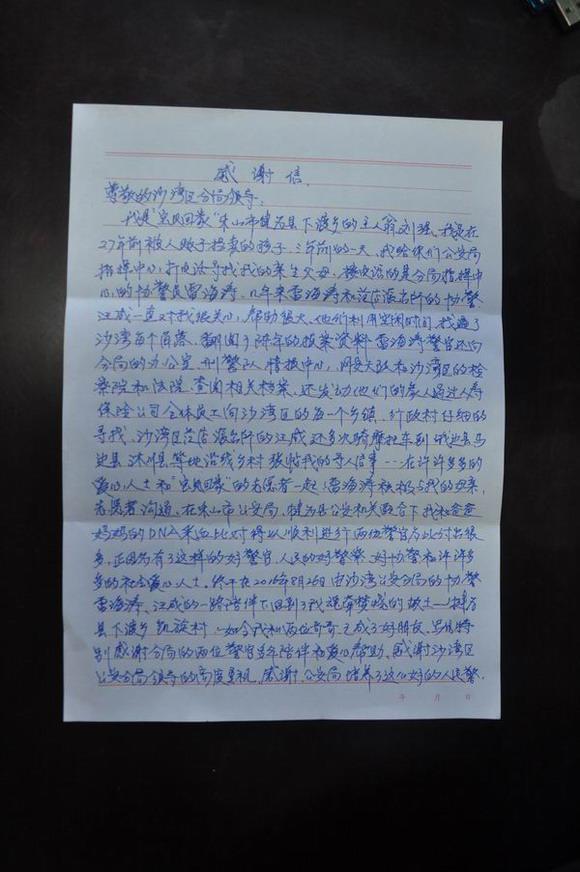 感谢信
尊敬的沙湾区分局领导:
我是"宝贝回家"乐山市犍为县下渡乡的主人翁刘强。我是在
27年前被人贩子拐卖的孩子。三年前的一天,我给你们公安局
指挥中心打电话寻找我的亲生父母。接电话的是分局指挥中
心的协警员雷海涛。几年来雷海涛和范店派出所的协警
江威一直对我很关心,帮助很大。他们利用空闲时间,找遍了
沙湾百个角落。翻阅了陈年的报案资料 雷海涛警官还向
分局的办公室,刑警队 情报中心,网安大队和沙湾区的检
察院和法院,查阅相关档案,还发动他们的家人通过人寿
保险公司全体员工向沙湾区的每一个乡镇,行政村仔细的
寻找。沙湾区范店派出所的江威还多次骑摩托车到峨边县马
边县 沐川县等地沿线乡村张帖我的寻人启事……在许许多多的
爱心人士和"宝贝回家"的志愿者一起,雷海涛积极与我的母亲,
志愿者沟通,在乐山市公安局,犍为县公安机关配合下我和爸爸
妈妈的DNA采血比对得以顺利进行两位警官付出很
多,正因为有了这样的好警官,人民的好警察,好协警和许许多
多的社会爱心人士。终于在2016年8月26日由沙湾公安分局的协警
雷海涛、江威的一路陪伴下回到了我魂牵梦绕的故土——犍为
县下渡乡凯旋村。如今我和两位哥哥已成了好朋友,另外特
别感谢分局的两位警官多年陪伴和爱心帮助,再感谢沙湾区
公安分局领导的高度重视,感谢公安局培养了这么好的人民警
年 月 日